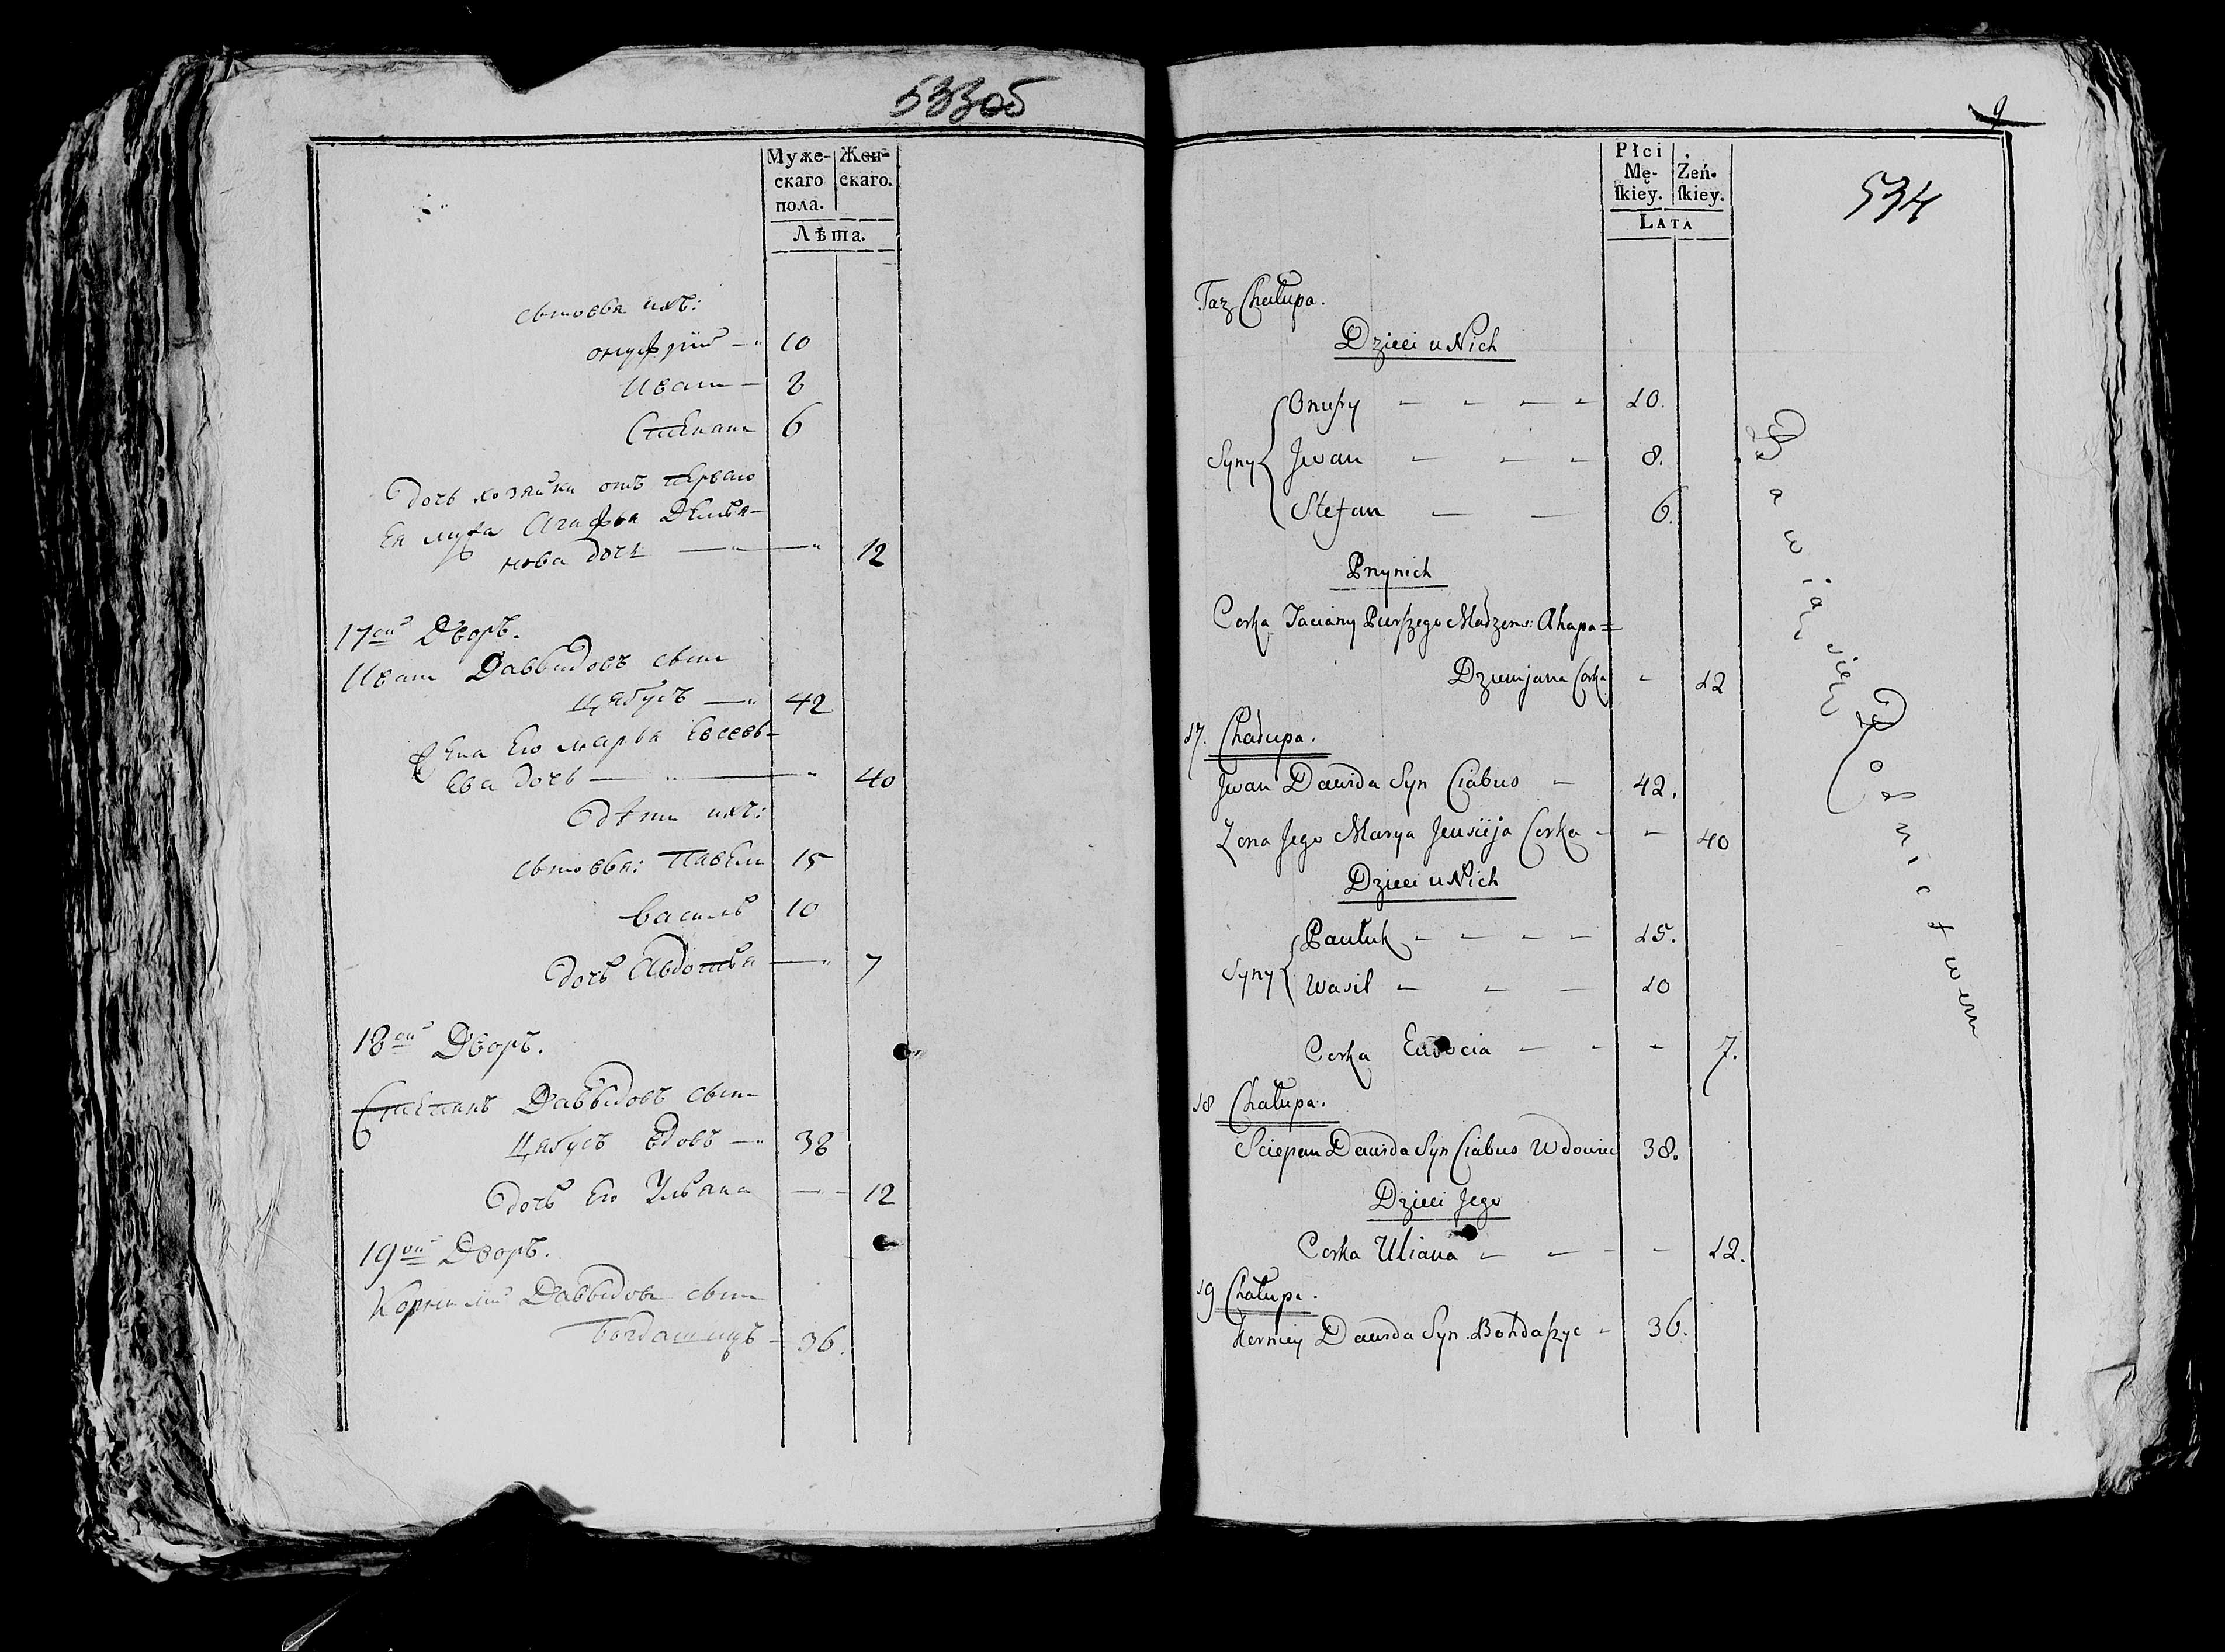 533об
Муже- Жен-
скаго скаго.
пола.
Лѣта.
сыновья ихъ:
онуфрій — 10
Иванъ — 8
Степанъ 6
Дочь хозяйки отъ перваго
Ея мужа Агафья Демья-
нова дочь — — 12
17ой Дворъ.
Иванъ Давыдовъ сынъ
Цябусъ — 42
Жена Его марья Евсеев-
ва дочь — — 40
Дѣти ихъ:
сыновья: Павелъ 15
Василь 10
Дочь Авдотья — 7
18ой Дворъ.
Степанъ Давыдовъ сынъ
Цябусъ вдовъ — 38
Дочь Его Ульяна — - 12
19ой Дворъ.
Корнилій Давыдовъ сынъ
Богдашицъ - 36.
9
534
Płci
Mę- Żeń-
ſkiey. ſkiey.
LATA
Taz Chałupa.
Dzieci u Nich
Syny
Onufry - - - - 10.
Jwan - - - 8.
Stefan - - 6.
Przynich
Corka Taciany Pierszego Madzens: Ahapa =
Dziemjana Corka - 12
17. Chałupa.
Jwan Dawida Syn Ciabus - 42.
Zona Jego Marya Jeusieja Corka - - 40
Dzieci u Nich
Syny
Pauluk - - - - 15.
Wasil - - - 10
Corka Eudocia - - - 7.
18 Chałupa.
Sciepan Dawida Syn Ciabus Wdowiec 38.
Dzieci Jego
Corka Uliana - - - - 12.
19 Chałupa.
Kerniey Dawida Syn Bohdaszyc - 36.
Bawiąc się Rolnictwem